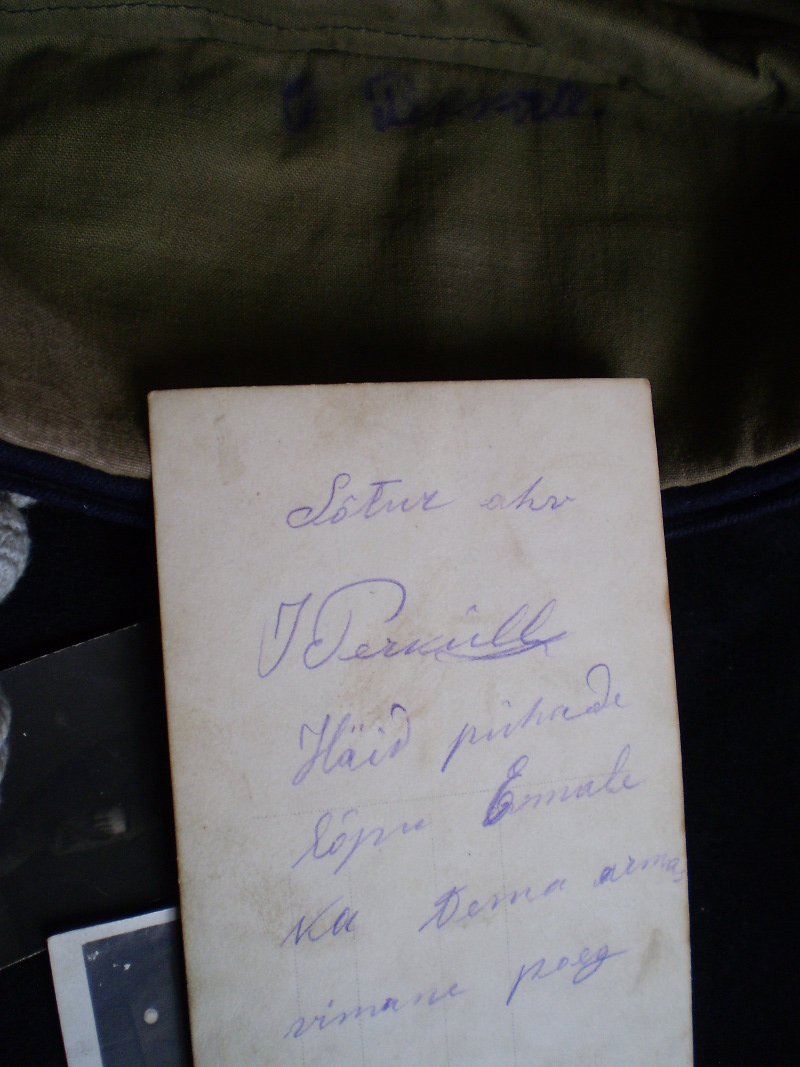 Sõtur ahv
J Perküll
Häid pühade
lõpu Emale
Ka Tema armas
viimane poeg